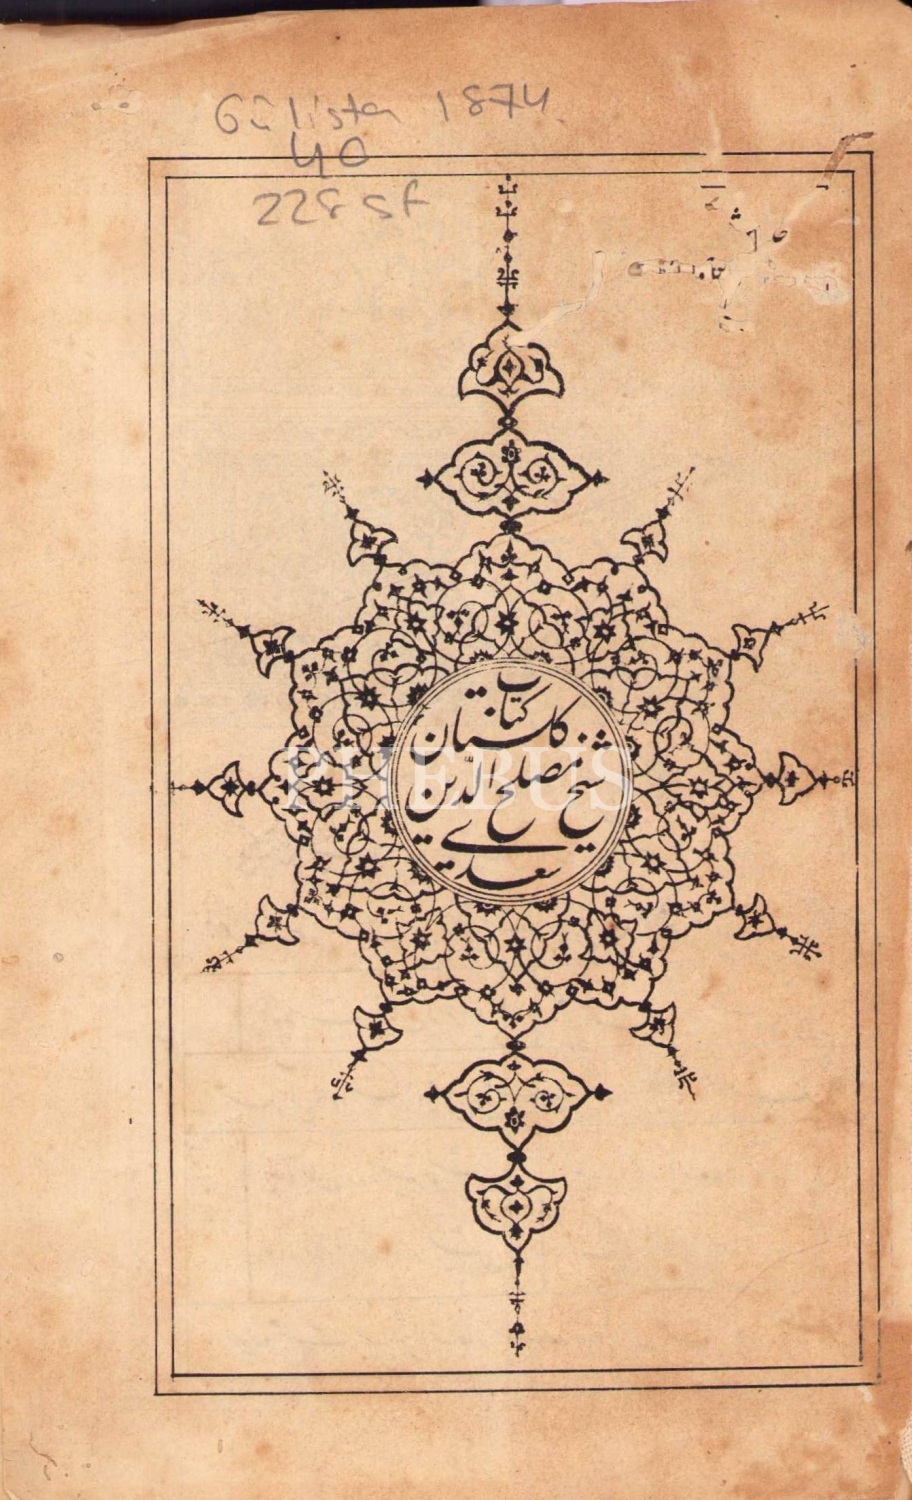 Gülistan 1874
40
228 sf
كتاب
گلستان
شيخ مصلح الدّين
سعدي
PHEBUS